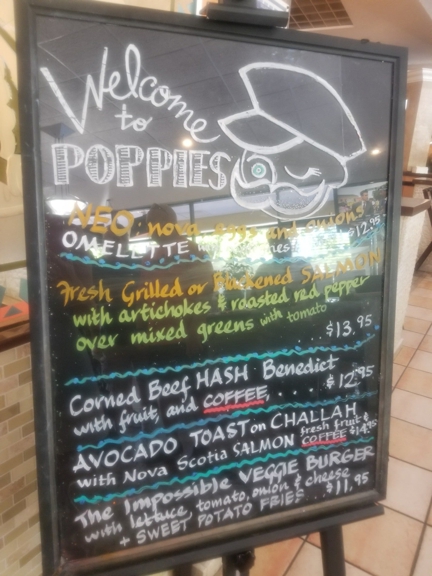 Welcome
to
POPPIES
NEO nova, eggs and onions
OMELETTE $12.95
Fresh Grilled or Blackened SALMON
with artichokes & roasted red pepper
over mixed greens with tomato
$13.95
Corned Beef HASH Benedict
with fruit, and COFFEE, . . . . $12.95
AVOCADO TOAST on CHALLAH
with Nova Scotia SALMON fresh fruit & COFFEE $14.95
The Impossible VEGGIE BURGER
with lettuce, tomato, onion & cheese
+ SWEET POTATO FRIES . . . $11.95